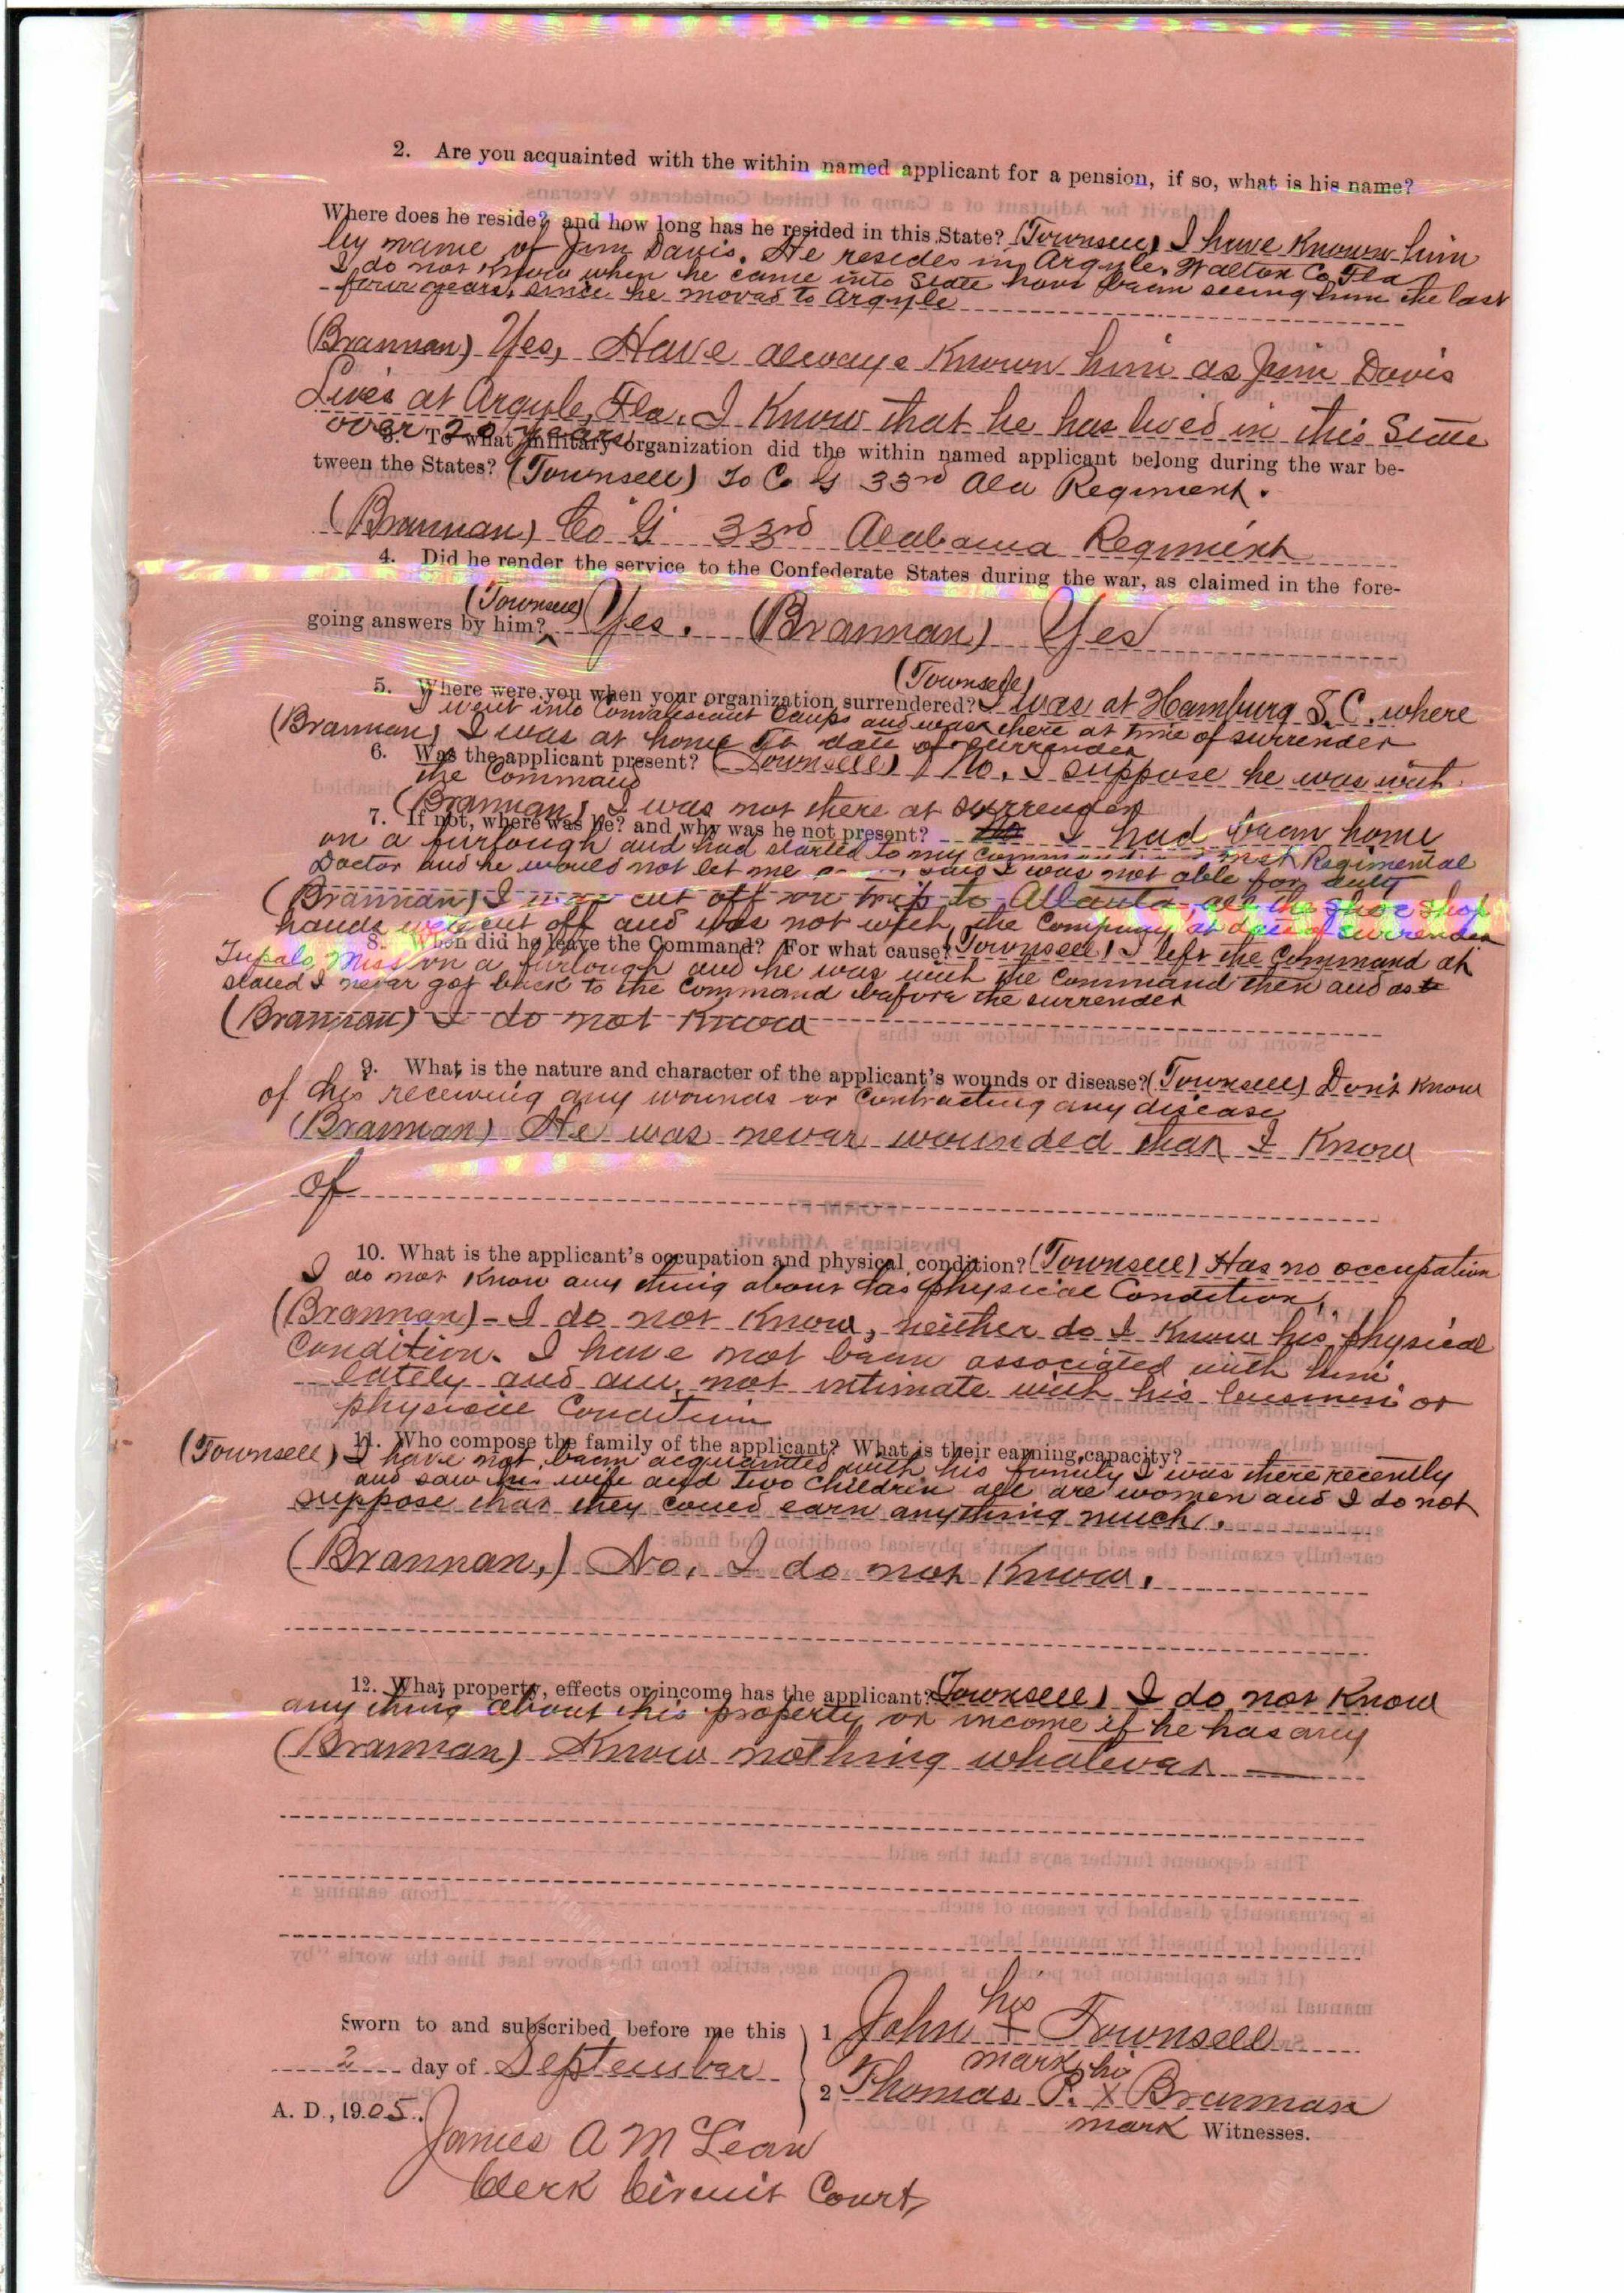 2. Are you acquainted with the within named applicant for a pension, if so, what is his name?
Where does he reside? and how long has he resided in this State? (Townsell) I have Known him
by name of Jim Davis. He resides in Argyle, Walton Co Fla
I do not Know when he came into State have been seeing him the last
four years, since he moved to Argyle
(Brannan) Yes, Have always Known him as Jim Davis
Lives at Argyle, Fla. I Know that he has lived in this State
over 20 years
3. To what military organization did the within named applicant belong during the war be-
tween the States? (Townsell) To Co G 33rd Ala Regiment.
(Brannan) Co G 33rd Alabama Regiment
4. Did he render the service to the Confederate States during the war, as claimed in the fore-
going answers by him? (Townsell) Yes. (Brannan) Yes
5. Where were you when your organization surrendered? (Townsell) I was at Hamburg S.C. where
I went into Convalescent Camps and was there at time of surrender
(Brannan) I was at home at date of surrender
6. Was the applicant present? (Townsell) No, I suppose he was with
the Command
(Brannan) I was not there at surrender
7. If not, where was he? and why was he not present? I had been home
on a furlough and had started to my command met Regimental
Doctor and he would not let me said I was not able for duty
(Brannan) I was cut off on trip to Atlanta, all the shoe shop
hands were cut off and was not with the Company at date of surrender
8. When did he leave the Command? For what cause? (Townsell) I left the Command at
Tupalo, Miss on a furlough and he was with the Command then and as
stated I never got back to the Command before the surrender
(Brannan) I do not Know
9. What is the nature and character of the applicant's wounds or disease? (Townsell) Don't Know
of his receiving any wounds or Contracting any disease
(Brannan) He was never wounded that I Know
of
10. What is the applicant's occupation and physical condition? (Townsell) Has no occupation
I do not Know any thing about his physical Condition,
(Brannan) - I do not Know, neither do I Know his physical
Condition. I have not been associated with him
lately and am not intimate with his business or
physical Condition
11. Who compose the family of the applicant? What is their earning capacity?
(Townsell) I have not been acquainted with his family I was there recently
and saw his wife and two Children all are women and I do not
suppose that they could earn anything much.
(Brannan,) No, I do not Know.
12. What property, effects or income has the applicant? (Townsell) I do not Know
any thing about his property or income if he has any
(Brannan) Know nothing whatever
Sworn to and subscribed before me this
2 day of September
A. D., 1905.
James A McLean
Clerk Circuit Court
1 John his X mark Townsell
2 Thomas P. his X mark Brannan
Witnesses.